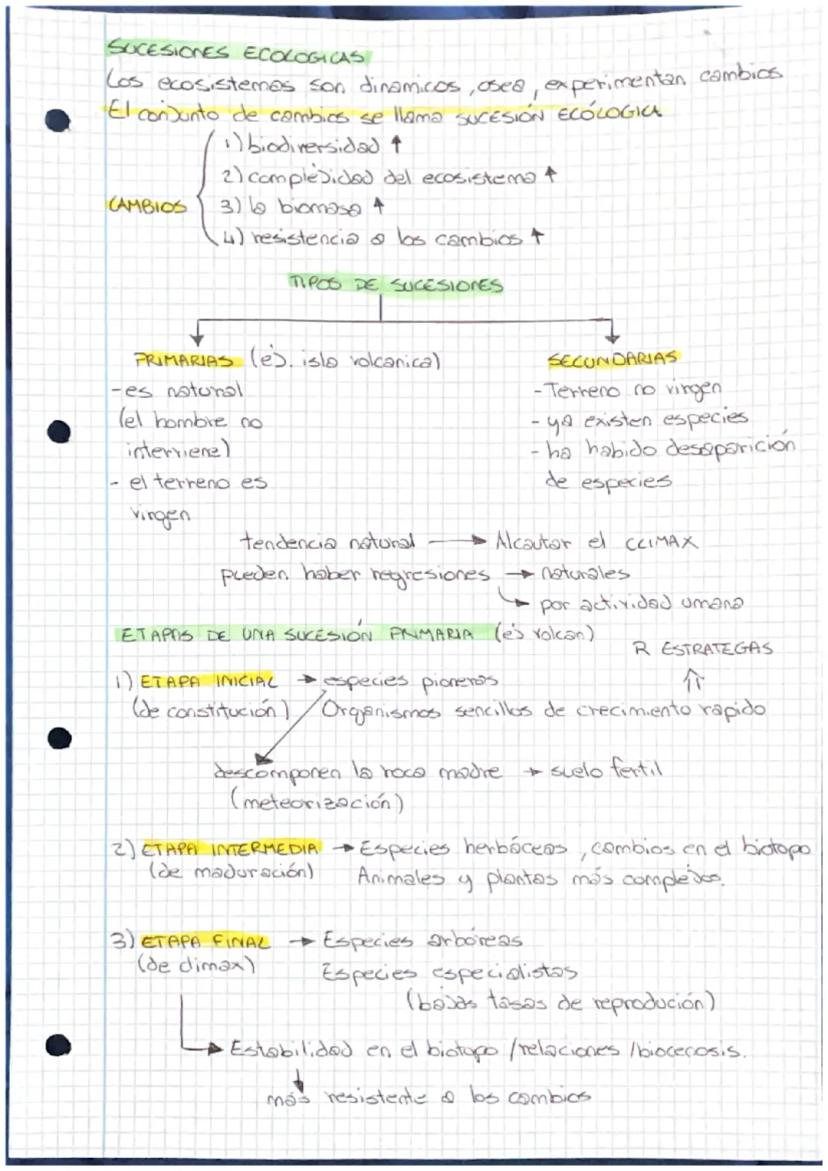 SUCESIONES ECOLOGICAS
Los ecosistemas son dinamicos, osea, experimentan cambios
El conjunto de cambios se llama SUCESIÓN ECÓLOGICA
1) biodiversidad ↑
2) complejidad del ecosistema ↑
CAMBIOS
3) la biomasa ↑
4) resistencia a los cambios ↑
TIPOS DE SUCESIONES
PRIMARIAS (ej. isla volcanica)
-es natural
(el hombre no
interviene)
- el terreno es
virgen
SECUNDARIAS
- Terreno no virgen
- ya existen especies
- ha habido desaparición
de especies
tendencia natural → Alcautar el CLIMAX
pueden haber regresiones → naturales
↳ por actividad umana
ETAPAS DE UNA SUCESIÓN PRIMARIA (ej volcan)
R ESTRATEGAS
1) ETAPA INICIAL → especies pioneras
⇑
(de constitución) Organismos sencillos de crecimiento rapido
descomponen la roca madre → suelo fertil
(meteorización)
2) ETAPA INTERMEDIA → Especies herbáceas, cambios en el biotopo
(de maduración) Animales y plantas más complejos.
3) ETAPA FINAL → Especies arbóreas
(de climax) Especies especialistas
(bajas tasas de reprodución)
↳ Estabilidad en el biotopo /relaciones /biocenosis.
↓
más resistente a los cambios